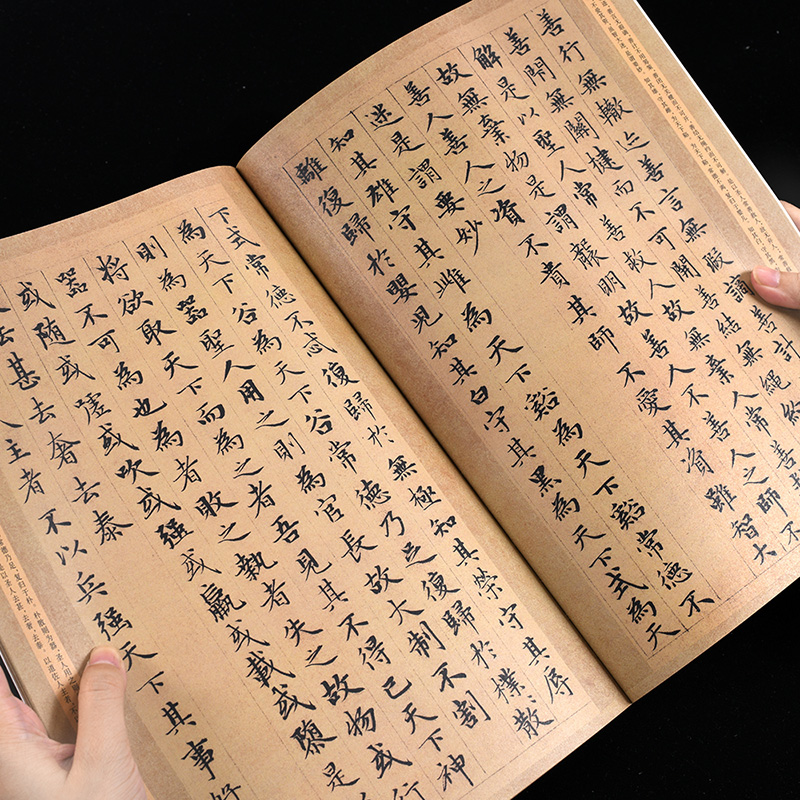 善行無轍迹善言無瑕讁善計
善閇無關揵而不可開善結無繩約
解是以聖人常善救人故無棄人常善
故無棄物是謂襲明故善人不善人之師
善人善人之資不貴其師不愛其資雖智大
迷是謂要妙
知其雄守其雌為天下谿為天下谿常德不
離復歸於嬰兒知其白守其黑為天下式為天
下式常德不忒復歸於無極知其榮守其辱
為天下谷為天下谷常德乃足復歸於樸散
則為器聖人用之則為官長故大制不割
將欲取天下而為之者吾見其不得已天下神
器不可為也為者敗之執者失之故物或行
或随或噓或吹或强或羸或載或隳是
去甚去奢去泰
主者不以兵强天下其事好